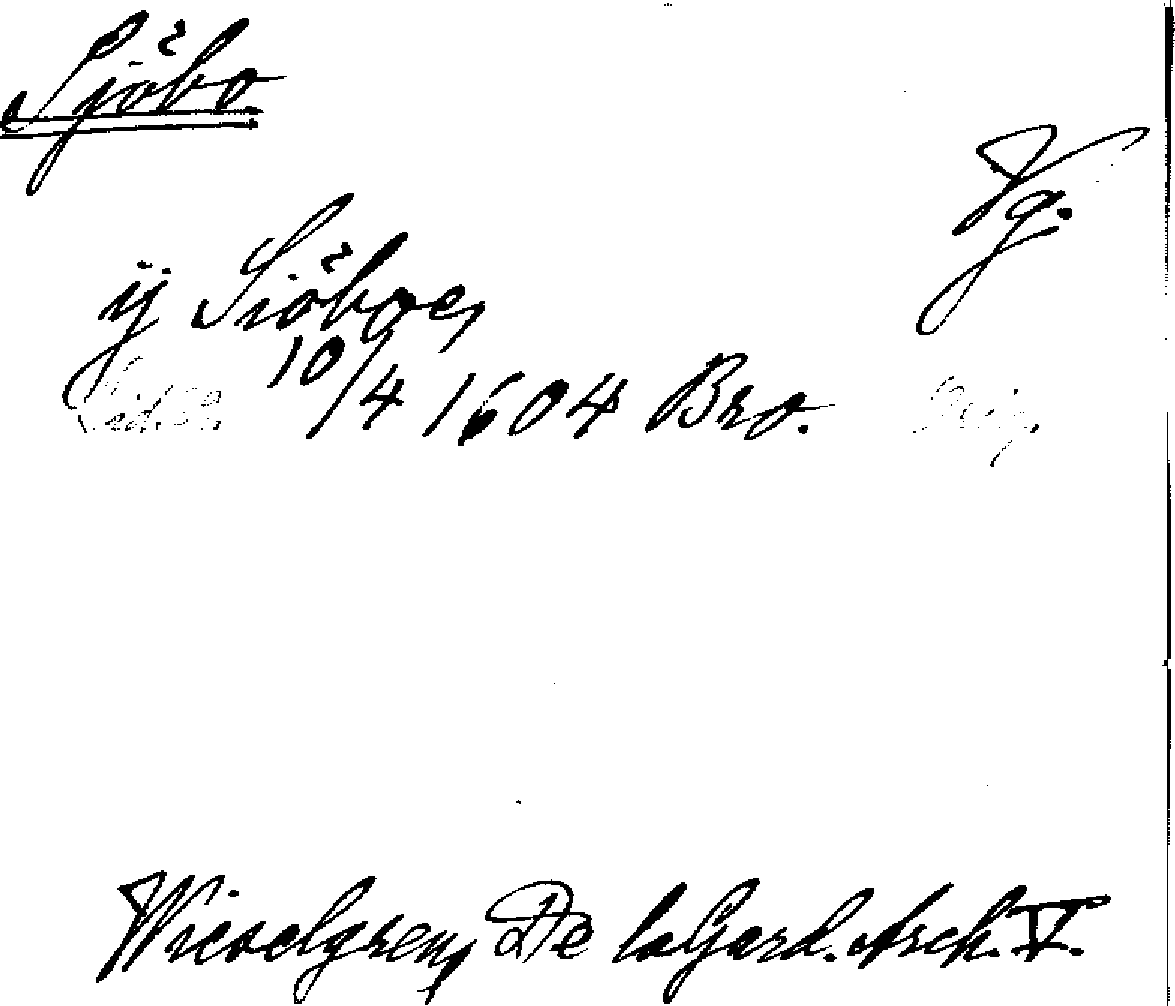 Sjöbo
Vg.
ij Siöboe,
10/4 1604 Bro. Orig.
Wieselgren, De la Gard. Arch. V.